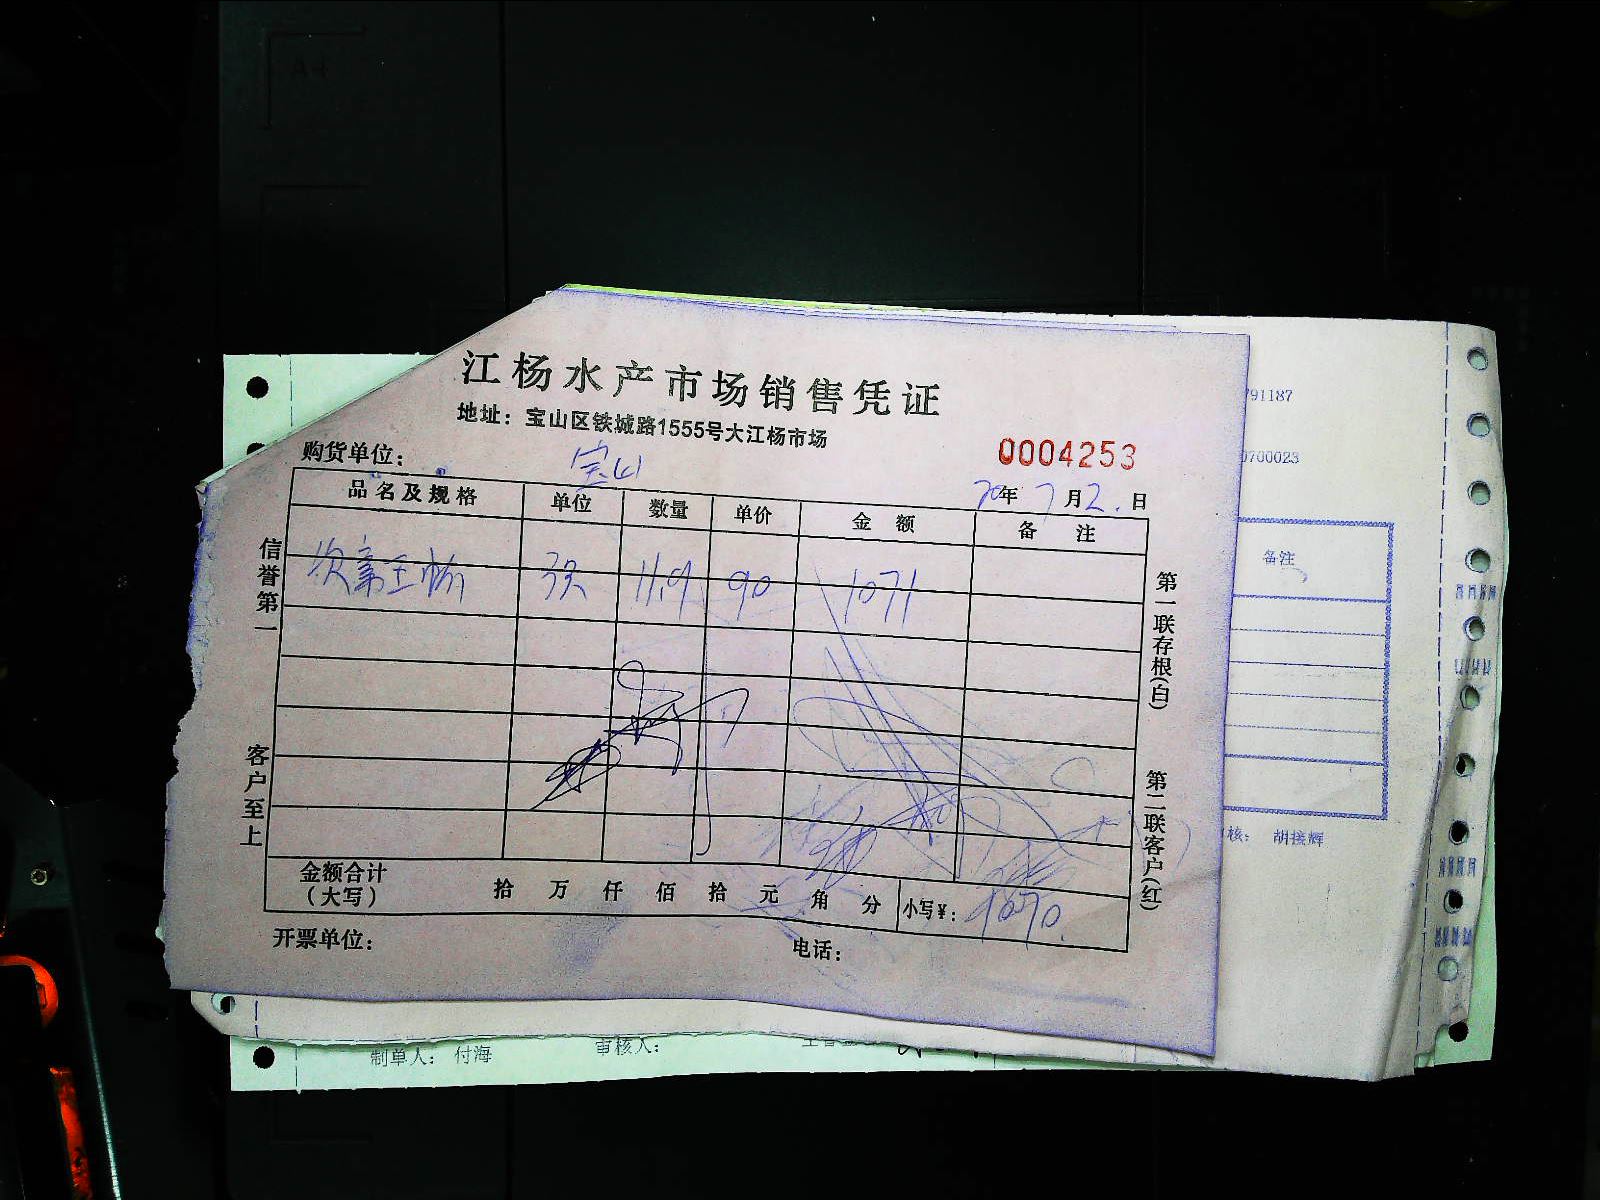 江杨水产市场销售凭证
地址：宝山区铁城路1555号大江杨市场
购货单位： 宝山
0004253
20年7月2日
品名及规格 单位 数量 单价 金额 备注
11.9 90 1071
信誉第一
客户至上
第一联存根(白)
第二联客户(红)
金额合计
（大写） 拾 万 仟 佰 拾 元 角 分 小写¥： 1070
开票单位： 电话：
791187
0700023
备注
核： 胡接辉
制单人： 付海 审核人：